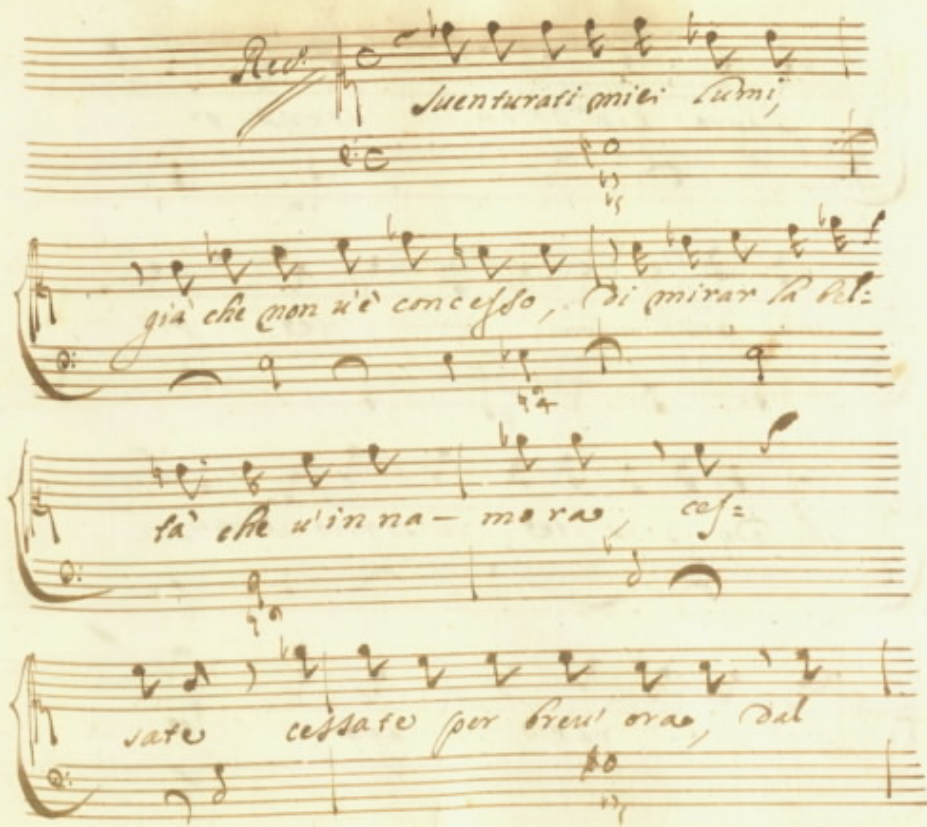 Rec.º
Suenturati miei lumi,
già che non u'è concesso, di mirar la bel=
tà che u'in na- mo ra, ces=
sate cessate per breu' ora, dal